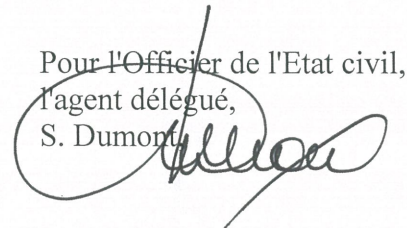 Pour l'Officier de l'Etat civil,
l'agent délégué,
S. Dumont